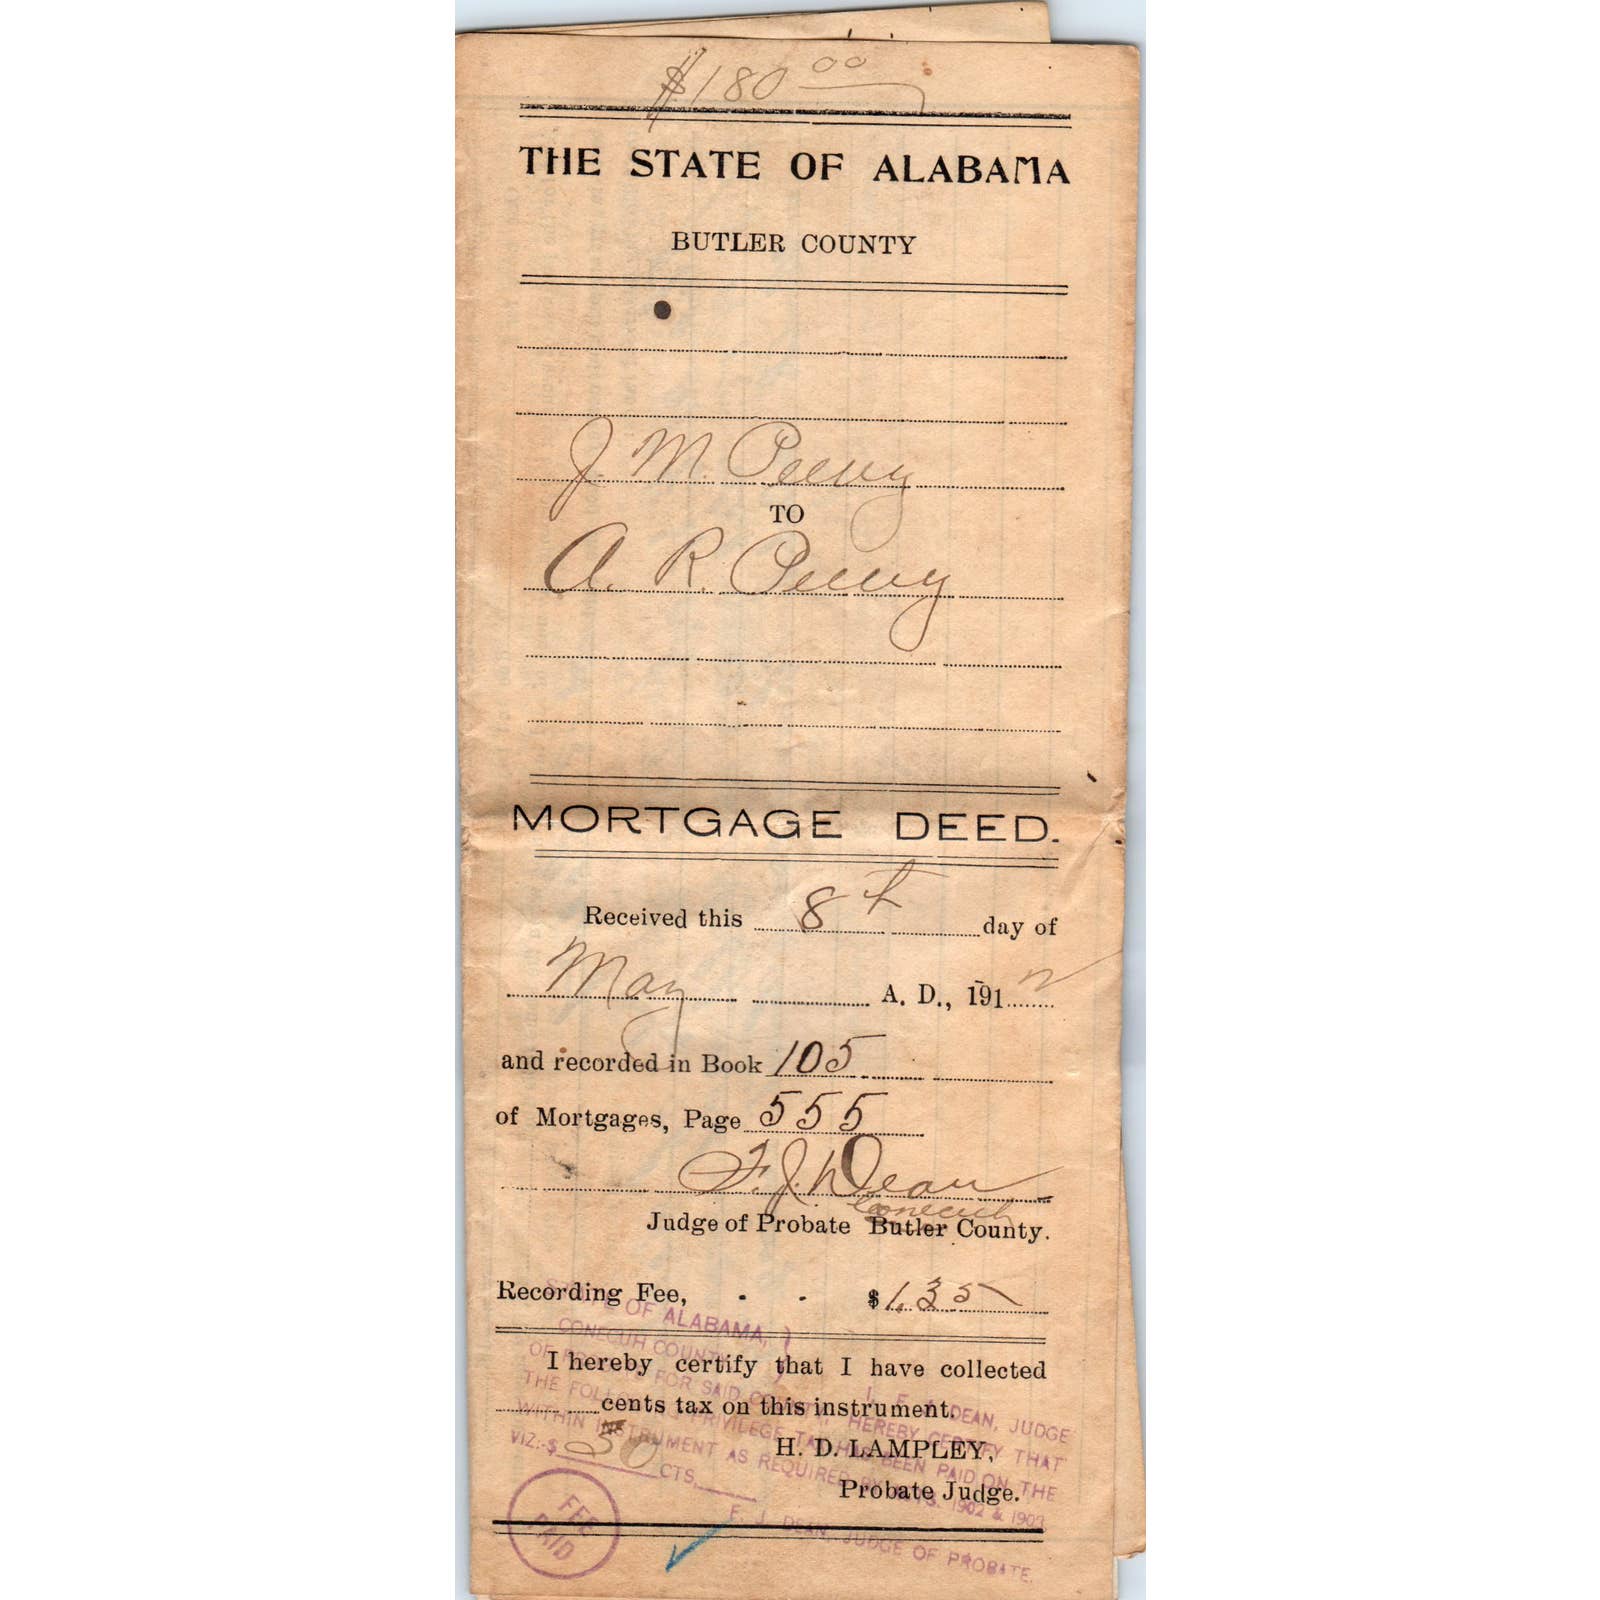 $180.00
THE STATE OF ALABAMA
BUTLER COUNTY
J. M. Peevy
TO
A. R. Peevy
MORTGAGE DEED.
Received this 8th day of
May A. D., 1912
and recorded in Book 105
of Mortgages, Page 555
F. J. Dean
Conecuh
Judge of Probate Butler County.
Recording Fee, - - $1.35
STATE OF ALABAMA,
CONECUH COUNTY
I hereby certify that I have collected
cents tax on this instrument.
H. D. LAMPLEY,
Probate Judge.
I, F. J. DEAN, JUDGE
OF PROBATE FOR SAID COUNTY, HEREBY CERTIFY THAT
THE FOLLOWING PRIVILEGE TAX HAS BEEN PAID ON THE
WITHIN INSTRUMENT AS REQUIRED BY ACTS. 1902 & 1903
VIZ:-$ 30 CTS,
F. J. DEAN, JUDGE OF PROBATE.
FEE
PAID